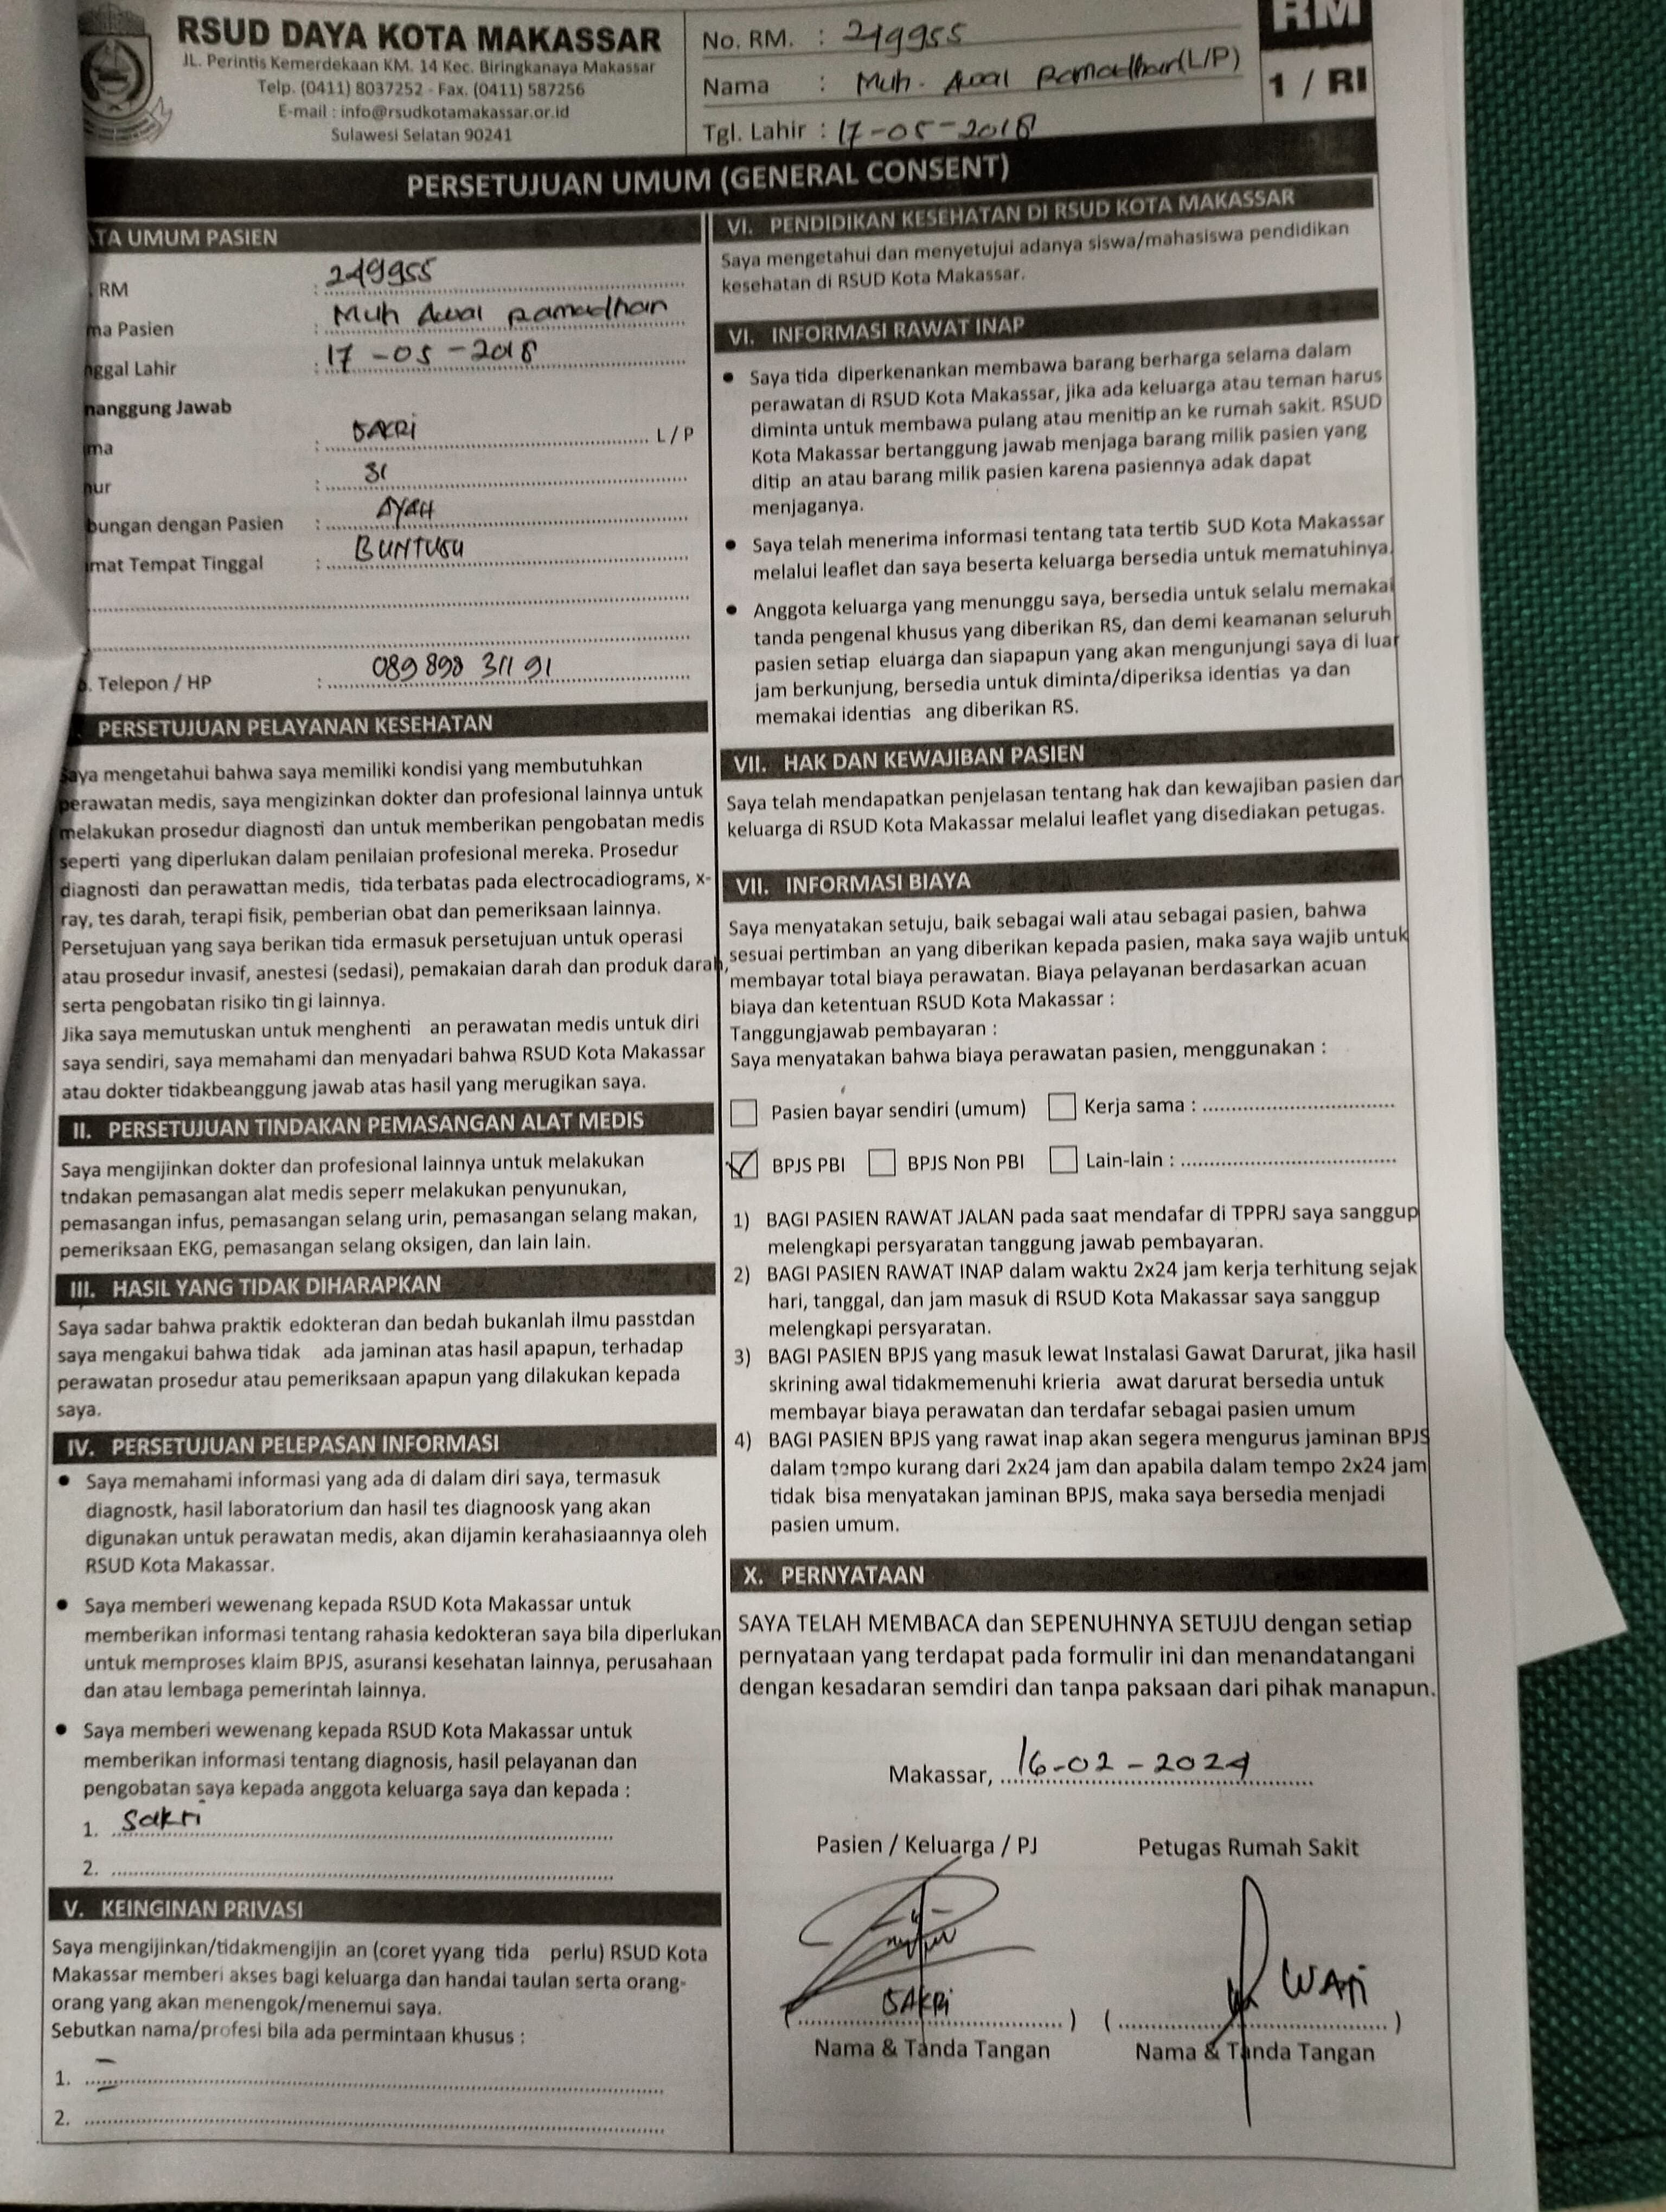 RSUD DAYA KOTA MAKASSAR
JL. Perintis Kemerdekaan KM. 14 Kec. Biringkanaya Makassar
Telp. (0411) 8037252 - Fax. (0411) 587256
E-mail : info@rsudkotamakassar.or.id
Sulawesi Selatan 90241
No. RM. : 249955
Nama : Muh. Awal Ramadhan (L/P)
Tgl. Lahir : 17-05-2018
RM
1 / RI
PERSETUJUAN UMUM (GENERAL CONSENT)
TA UMUM PASIEN
RM : 249955
ma Pasien : Muh Awal Ramadhan
nggal Lahir : 17-05-2018
nanggung Jawab
ma : SAKRI L / P
nur : 31
bungan dengan Pasien : AYAH
mat Tempat Tinggal : BUNTUSU
. Telepon / HP : 089 898 311 91
PERSETUJUAN PELAYANAN KESEHATAN
Saya mengetahui bahwa saya memiliki kondisi yang membutuhkan
perawatan medis, saya mengizinkan dokter dan profesional lainnya untuk
melakukan prosedur diagnosti dan untuk memberikan pengobatan medis
seperti yang diperlukan dalam penilaian profesional mereka. Prosedur
diagnosti dan perawattan medis, tida terbatas pada electrocadiograms, x-
ray, tes darah, terapi fisik, pemberian obat dan pemeriksaan lainnya.
Persetujuan yang saya berikan tida ermasuk persetujuan untuk operasi
atau prosedur invasif, anestesi (sedasi), pemakaian darah dan produk darah,
serta pengobatan risiko tin gi lainnya.
Jika saya memutuskan untuk menghenti an perawatan medis untuk diri
saya sendiri, saya memahami dan menyadari bahwa RSUD Kota Makassar
atau dokter tidakbeanggung jawab atas hasil yang merugikan saya.
II. PERSETUJUAN TINDAKAN PEMASANGAN ALAT MEDIS
Saya mengijinkan dokter dan profesional lainnya untuk melakukan
tndakan pemasangan alat medis seperr melakukan penyunukan,
pemasangan infus, pemasangan selang urin, pemasangan selang makan,
pemeriksaan EKG, pemasangan selang oksigen, dan lain lain.
III. HASIL YANG TIDAK DIHARAPKAN
Saya sadar bahwa praktik edokteran dan bedah bukanlah ilmu passtdan
saya mengakui bahwa tidak ada jaminan atas hasil apapun, terhadap
perawatan prosedur atau pemeriksaan apapun yang dilakukan kepada
saya.
IV. PERSETUJUAN PELEPASAN INFORMASI
• Saya memahami informasi yang ada di dalam diri saya, termasuk
diagnostk, hasil laboratorium dan hasil tes diagnoosk yang akan
digunakan untuk perawatan medis, akan dijamin kerahasiaannya oleh
RSUD Kota Makassar.
• Saya memberi wewenang kepada RSUD Kota Makassar untuk
memberikan informasi tentang rahasia kedokteran saya bila diperlukan
untuk memproses klaim BPJS, asuransi kesehatan lainnya, perusahaan
dan atau lembaga pemerintah lainnya.
• Saya memberi wewenang kepada RSUD Kota Makassar untuk
memberikan informasi tentang diagnosis, hasil pelayanan dan
pengobatan saya kepada anggota keluarga saya dan kepada :
1. Sakri
2.
V. KEINGINAN PRIVASI
Saya mengijinkan/tidakmengijin an (coret yyang tida perlu) RSUD Kota
Makassar memberi akses bagi keluarga dan handai taulan serta orang-
orang yang akan menengok/menemui saya.
Sebutkan nama/profesi bila ada permintaan khusus :
1. -
2.
VI. PENDIDIKAN KESEHATAN DI RSUD KOTA MAKASSAR
Saya mengetahui dan menyetujui adanya siswa/mahasiswa pendidikan
kesehatan di RSUD Kota Makassar.
VI. INFORMASI RAWAT INAP
• Saya tida diperkenankan membawa barang berharga selama dalam
perawatan di RSUD Kota Makassar, jika ada keluarga atau teman harus
diminta untuk membawa pulang atau menitip an ke rumah sakit. RSUD
Kota Makassar bertanggung jawab menjaga barang milik pasien yang
ditip an atau barang milik pasien karena pasiennya adak dapat
menjaganya.
• Saya telah menerima informasi tentang tata tertib SUD Kota Makassar
melalui leaflet dan saya beserta keluarga bersedia untuk mematuhinya.
• Anggota keluarga yang menunggu saya, bersedia untuk selalu memakai
tanda pengenal khusus yang diberikan RS, dan demi keamanan seluruh
pasien setiap eluarga dan siapapun yang akan mengunjungi saya di luar
jam berkunjung, bersedia untuk diminta/diperiksa identias ya dan
memakai identias ang diberikan RS.
VII. HAK DAN KEWAJIBAN PASIEN
Saya telah mendapatkan penjelasan tentang hak dan kewajiban pasien dan
keluarga di RSUD Kota Makassar melalui leaflet yang disediakan petugas.
VII. INFORMASI BIAYA
Saya menyatakan setuju, baik sebagai wali atau sebagai pasien, bahwa
sesuai pertimban an yang diberikan kepada pasien, maka saya wajib untuk
membayar total biaya perawatan. Biaya pelayanan berdasarkan acuan
biaya dan ketentuan RSUD Kota Makassar :
Tanggungjawab pembayaran :
Saya menyatakan bahwa biaya perawatan pasien, menggunakan :
Pasien bayar sendiri (umum) Kerja sama :
✓ BPJS PBI BPJS Non PBI Lain-lain :
1) BAGI PASIEN RAWAT JALAN pada saat mendafar di TPPRJ saya sanggup
melengkapi persyaratan tanggung jawab pembayaran.
2) BAGI PASIEN RAWAT INAP dalam waktu 2x24 jam kerja terhitung sejak
hari, tanggal, dan jam masuk di RSUD Kota Makassar saya sanggup
melengkapi persyaratan.
3) BAGI PASIEN BPJS yang masuk lewat Instalasi Gawat Darurat, jika hasil
skrining awal tidakmemenuhi krieria awat darurat bersedia untuk
membayar biaya perawatan dan terdafar sebagai pasien umum
4) BAGI PASIEN BPJS yang rawat inap akan segera mengurus jaminan BPJS
dalam tempo kurang dari 2x24 jam dan apabila dalam tempo 2x24 jam
tidak bisa menyatakan jaminan BPJS, maka saya bersedia menjadi
pasien umum.
X. PERNYATAAN
SAYA TELAH MEMBACA dan SEPENUHNYA SETUJU dengan setiap
pernyataan yang terdapat pada formulir ini dan menandatangani
dengan kesadaran semdiri dan tanpa paksaan dari pihak manapun.
Makassar, 16-02-2024
Pasien / Keluarga / PJ Petugas Rumah Sakit
(SAKRI) (WATI)
Nama & Tanda Tangan Nama & Tanda Tangan